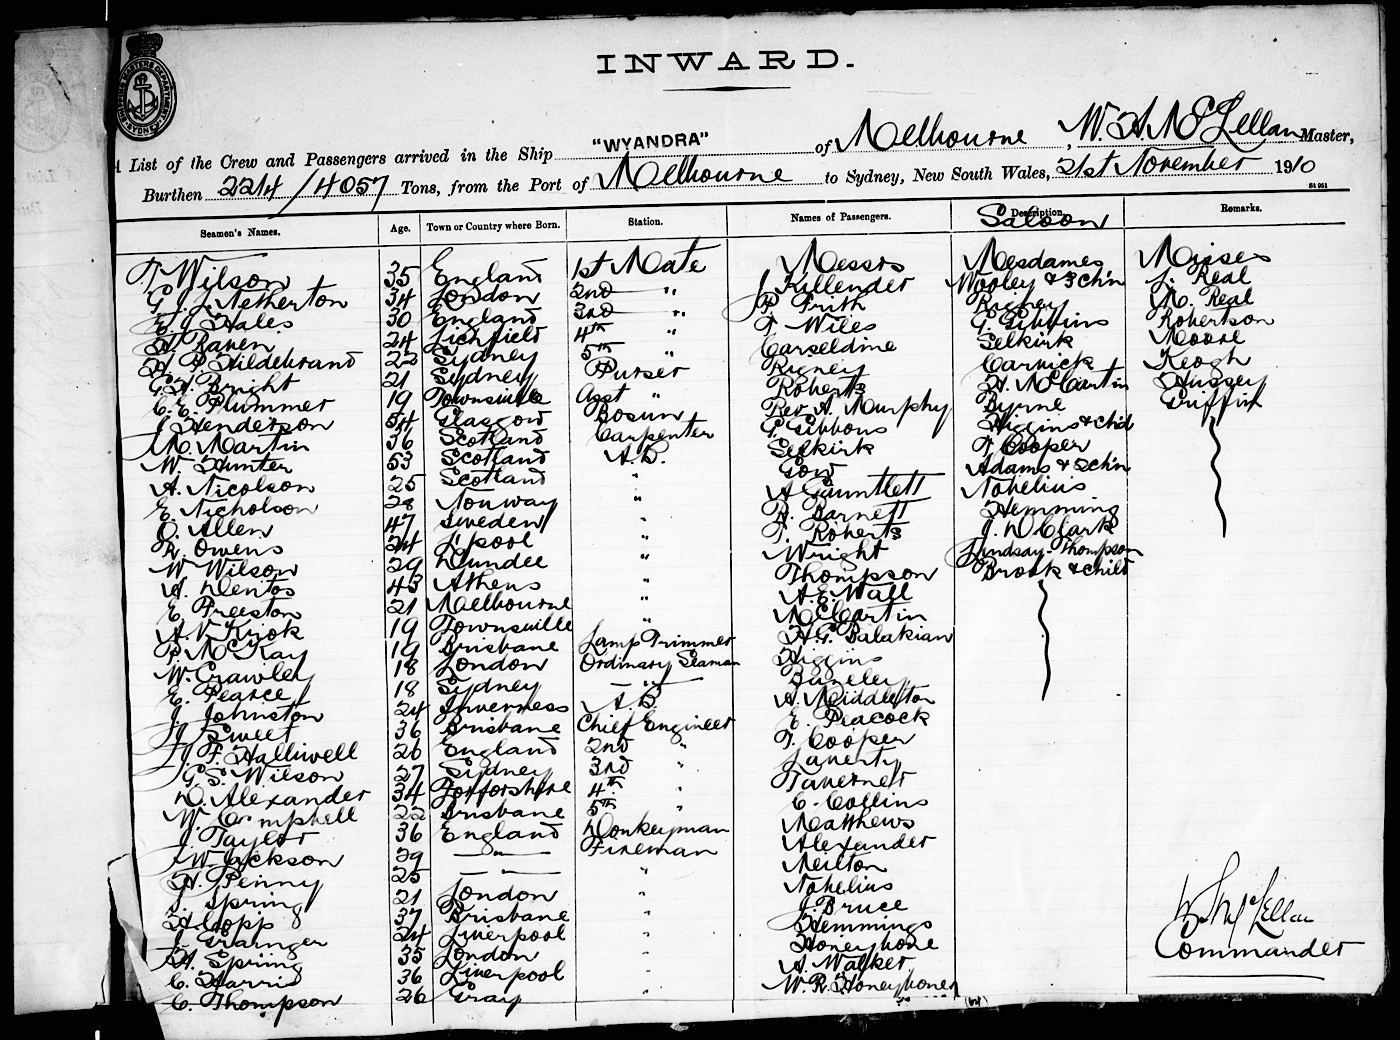 INWARD.
A List of the Crew and Passengers arrived in the Ship "WYANDRA" of Melbourne, W. A. McLellan Master,
Burthen 2214/4057 Tons, from the Port of Melbourne to Sydney, New South Wales, 21st November 1910
St 951
Seamen's Names. Age. Town or Country where Born. Station. Names of Passengers. Description. Saloon Remarks.
T Wilson 35 England 1st Mate Messrs Mesdames Misses
G. J. L. Netherton 34 London 2nd " J Killender Wooley & 3 ch'n J. Real
E. J Hales 30 England 3rd " P. Frith Rigney M. Real
W Raven 24 Lichfield 4th " F Wiles G. Gibbins Robertson
H. P. Hildebrand 22 Sydney 5th " Carseldine Selkirk Moore
G. H. Bright 21 Sydney Purser Rigney Carwick Keogh
C. E. Plummer 19 Townsville Asst " Roberts H. McCartin Hussey
J Henderson 54 Glasgow Bosun Rev A. Murphy Byrne Griffin
M. Martin 36 Scotland Carpenter G Gibbons Higgins & chd
W. Hunter 53 Scotland A.B. Selkirk T Cooper
A. Nicolson 25 Scotland " Gow Adams & 2 ch'n
E. Nicholson 28 Norway " A Gauntlett Nobelius
O. Allen 47 Sweden " R. Barnett Hemming
R. Owens 24 L'pool " F. Roberts J. D Clark
W Wilson 29 Dundee " Wright Lindsay-Thompson
A. Dentos 43 Athens " Thompson Brook & child
E Preeston 21 Melbourne " A. E. Wall
A. V. Krook 19 Townsville " McCartin
P. McKay 19 Brisbane Lamp Trimmer H. G. Balakian
W. Crawley 18 London Ordinary Seaman Higgins
E. Pearce 18 Sydney " Bazeley
J Johnston 24 Inverness A.B. A. Middleton
J Sweet 36 Brisbane Chief Engineer E. Peacock
J. F. Halliwell 26 England 2nd " T. Cooper
G. S. Wilson 27 Sydney 3rd " Laverty
D. Alexander 34 Forfarshire 4th " Taverner
W Campbell 22 Brisbane 5th " C. Collins
J. Taylor 36 England Donkeyman Matthews
W Jackson 29 " Fireman Alexander
H. Penny 25 " " Neilton
J Spring 21 London " Nobelius
H. Copp 37 Brisbane " J. Bruce
J Grainger 24 Liverpool " Hemmings
H. Spring 35 London " Honeybone
C. Harris 36 Liverpool " A. Walker
C. Thompson 26 Gray " W. R. Honeybone
W A McLellan
Commander